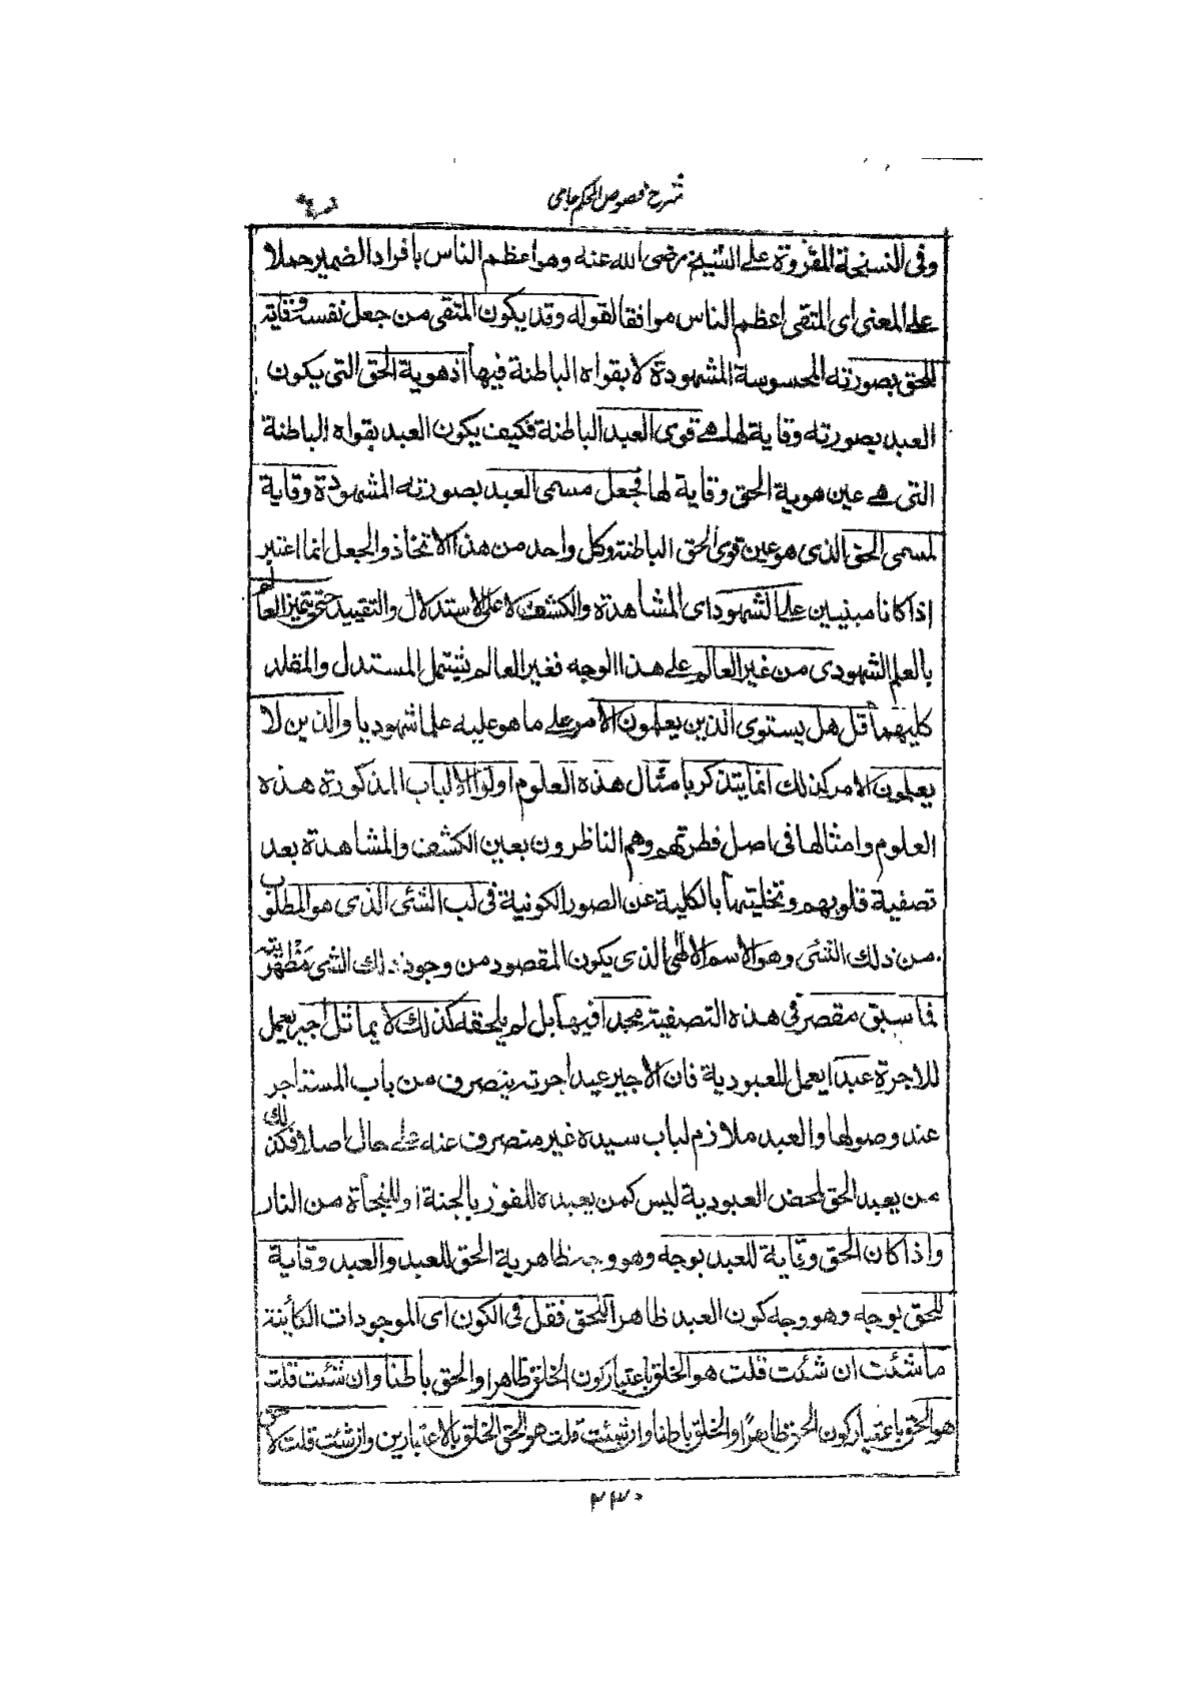 شرح فصوص الحكم جامى
وفى النسخة المقروة على الشيخ رضى الله عنه وهو اعظم الناس بافراد الضمير حملا
على المعنى اى المتقى اعظم الناس موافقا لقوله وقد يكون المتقى من جعل نفسه وقاية
للحق بصورته المحسوسة المشهودة لا بقواه الباطنة فيها اذ هوية الحق التى يكون
العبد بصورته وقاية لها هى قوى العبد الباطنة فكيف يكون العبد بقواه الباطنة
التى هى عين هوية الحق وقاية لها فجعل مسمى العبد بصورته المشهودة وقاية
لمسمى الحق الذى هو عين قوى الحق الباطنة وكل واحد من هذا الاتخاذ والجعل انما اعتبر
اذا كانا مبنيين على الشهود اى المشاهدة والكشف لا على الاستدلال والتقييد حتى يتميز العالم
بالعلم الشهودى من غير العالم على هذا الوجه فغير العالم يشتمل المستدل والمقلد
كليهما قل هل يستوى الذين يعلمون الامر على ما هو عليه علما شهوديا والذين لا
يعلمون الامر كذلك انما يتذكر بامثال هذه العلوم اولوا الالباب المذكورة هذه
العلوم وامثالها فى اصل فطرتهم وهم الناظرون بعين الكشف والمشاهدة بعد
تصفية قلوبهم وتخليتها بالكلية عن الصور الكونية فى لب الشئى الذى هو المطلوب
من ذلك الشئى وهو الاسم الالهى الذى يكون المقصود من وجود ذلك الشى مظهريته
فما سبق مقصر فى هذه التصفية مجدا فيها بل لم يلحقه كذلك لا يماثل اجير يعمل
للاجرة عبدا يعمل للعبودية فان الاجير عبد اجرته ينصرف من باب المستاجر
عند وصولها والعبد ملازم لباب سيده غير متصرف عنه على حال اصلا فكذلك
من يعبد الحق لمحض العبودية ليس كمن يعبده للفوز بالجنة او للنجاة من النار
واذا كان الحق وقاية للعبد بوجه وهو وجه ظاهرية الحق للعبد والعبد وقاية
للحق بوجه وهو وجه كون العبد ظاهرا للحق فقل فى الكون اى الموجودات الكائنة
ما شئت ان شئت قلت هو الخلق باعتبار كون الخلق ظاهرا والحق باطنا وان شئت قلت
هو الحق باعتبار كون الحق ظاهرا والخلق باطنا وان شئت قلت هو الحق الخلق بالاعتبارين وان شئت قلت لا حق
۲۳۰